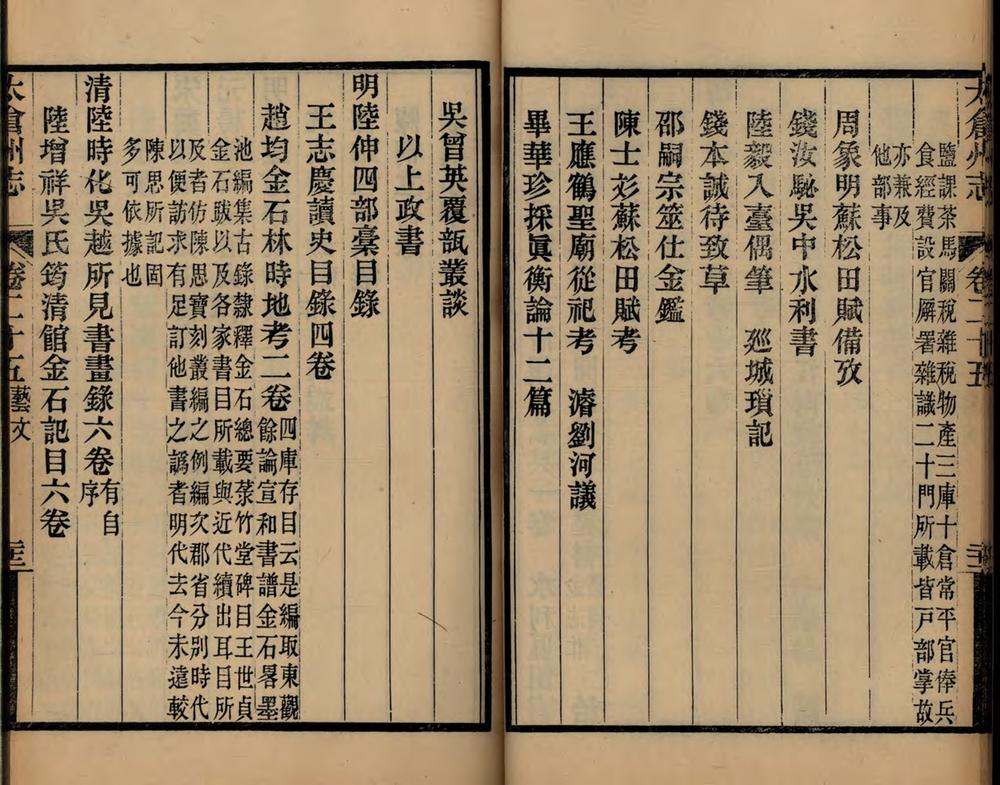 太倉州志 卷二十五
鹽課茶馬關稅雜稅物產三庫十倉常平官俸兵
食經費設官廨署雜識二十門所載皆戶部掌故
亦兼及
他部事
周象明蘇松田賦備攷
錢汝駓吳中水利書
陸毅入臺偶筆 廵城瑣記
錢本誠待致草
邵嗣宗筮仕金鑑
陳士彣蘇松田賦考
王應鶴聖廟從祀考 濬劉河議
畢華珍採眞衡論十二篇
吳曾英覆瓿叢談
以上政書
明陸仲四部稾目錄
王志慶讀史目錄四卷
趙均金石林時地考二卷
四庫存目云是編取東觀
餘論宣和書譜金石畧墨
池編集古錄隸釋金石總要菉竹堂碑目王世貞
金石跋以及各家書目所載與近代續出耳目所
及者仿陳思寶刻叢編之例編次郡省分別時代
以便訪求有足訂他書之譌者明代去今未遠較
陳思所記固
多可依據也
清陸時化吳越所見書畫錄六卷
有自
序
陸增祥吳氏筠清館金石記目六卷
太倉州志 卷二十五 藝文